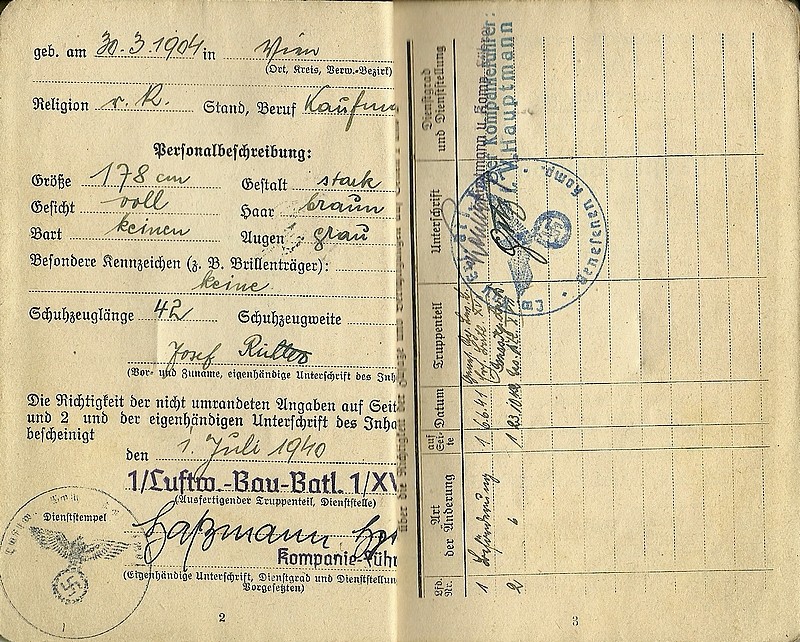 geb. am 30.3.1904 in Wien
(Ort, Kreis, Verw.-Bezirk)
Religion r. K. Stand, Beruf Kaufm
Personalbeschreibung:
Größe 178 cm Gestalt stark
Gesicht voll Haar braun
Bart keinen Augen grau
Besondere Kennzeichen (z. B. Brillenträger):
keine
Schuhzeuglänge 42 Schuhzeugweite
Josef
(Vor- und Zuname, eigenhändige Unterschrift des Inh
Die Richtigkeit der nicht umrandeten Angaben auf Seit
und 2 und der eigenhändigen Unterschrift des Inha
bescheinigt
den 1. Juli 1940
1/Luftw.-Bau-Batl. 1/XV
(Ausfertigender Truppenteil, Dienststelle)
Dienststempel
Kompanie-Führ
(Eigenhändige Unterschrift, Dienstgrad und Dienststellun
Vorgesetzten)
2
Lfd. Nr.
Art der Änderung
auf Seite
Datum
Truppenteil
Unterschrift
Dienstgrad und Dienststellung
1 Beförderung 1 6.6.41
2 " 1
Hauptmann u. Komp.
Kompanieführer:
Hauptmann
Genesenen Komp.
3